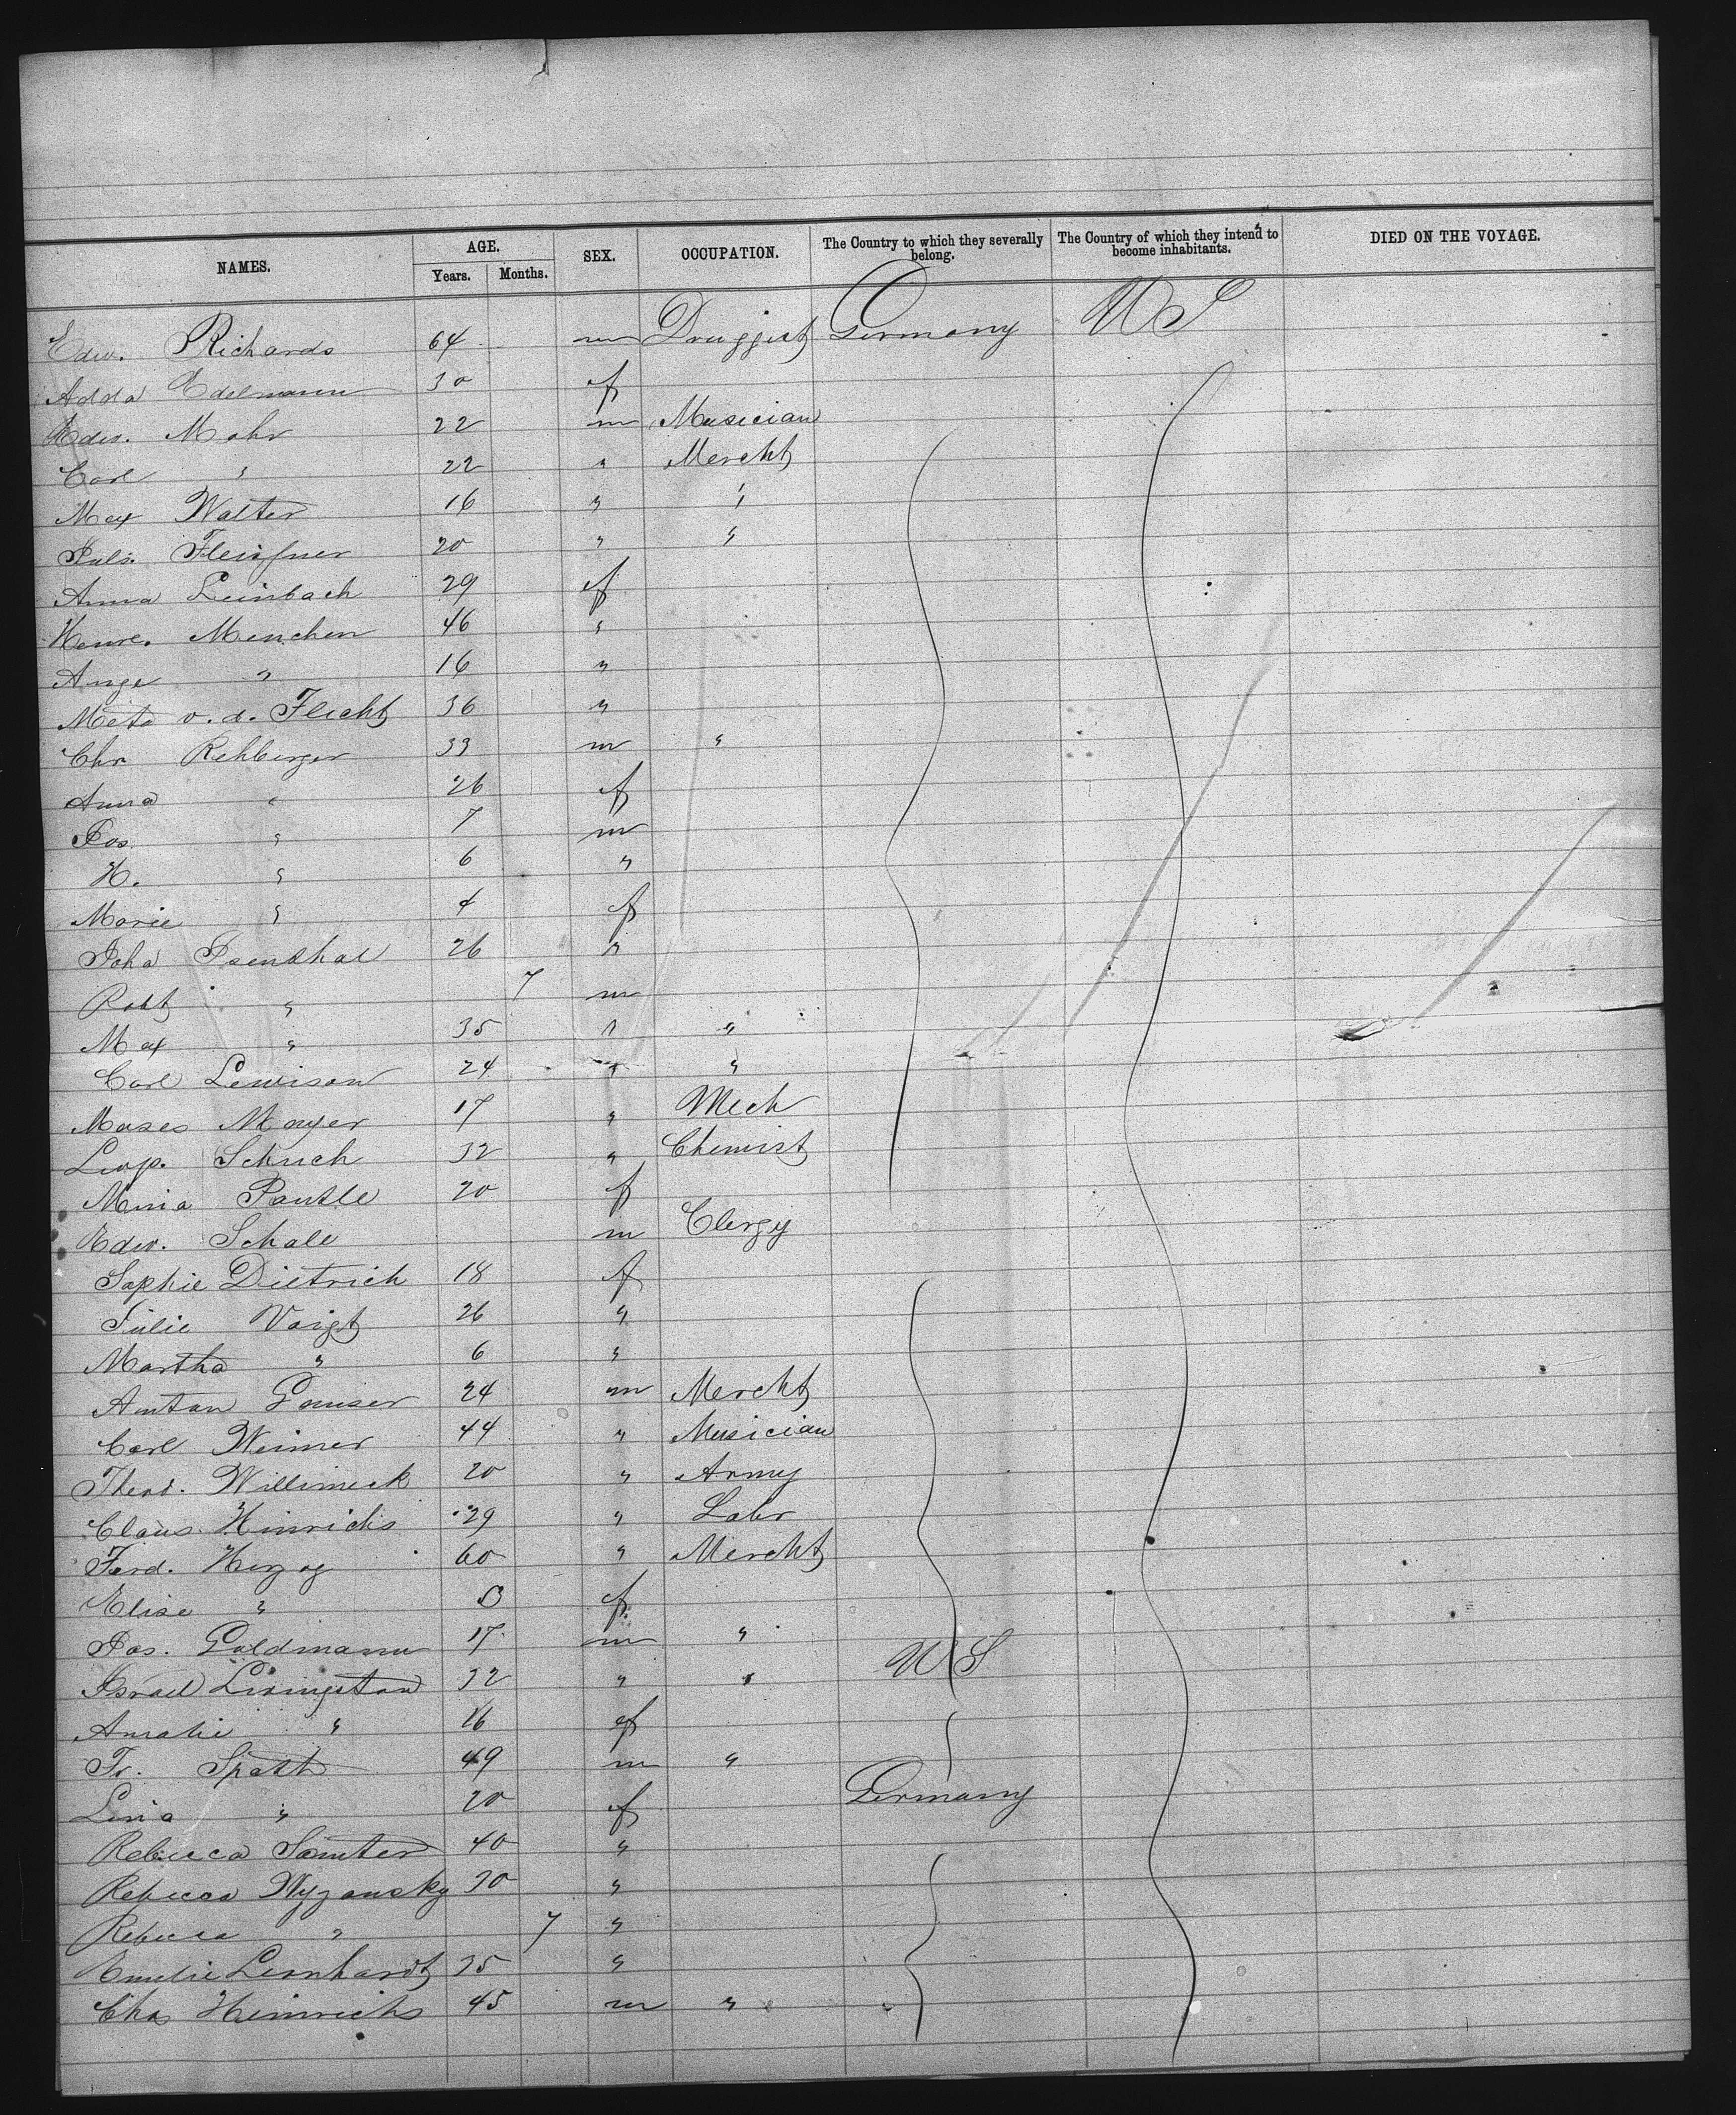 NAMES. AGE. SEX. OCCUPATION. The Country to which they severally belong. The Country of which they intend to become inhabitants. DIED ON THE VOYAGE.
Years. Months.
Edw. Richards 64 m Druggist Germany U S
Adda Edelmann 30 f
Edw. Mohr 22 m Musician
Carl " 22 " Mercht
Max Walter 16 " "
Juls. Fleissner 20 " "
Anna Leinbach 29 f
Henre. Menchen 46 "
Ange " 16 "
Meta v. d. Flecht 36 "
Chr Rehberger 33 m "
Anna " 26 f
Jos " 7 m
H. " 6 "
Marie " 4 f
Joha Isenthal 26 "
Robt " 7 m
Max " 35 " "
Carl Lewison 24 " "
Moses Mayer 17 " Mech
Leop. Schuch 32 " Chemist
Mina Pantle 20 f
Edw. Schall m Clergy
Sophie Dietrich 18 f
Julie Voigt 26 "
Martha " 6 "
Anton 24 m Mercht
Carl Weimer 44 " Musician
Theod. Willimeck 20 " Army
Claus Hinrichs 29 " Labr
Ferd. Herzog 60 " Mercht
Elise " f
Jos. Goldmann 17 m "
Israel Livingston 32 " " U S
Amalie " 26 f
Fr. Spath 49 m "
Lina " 20 f Germany
Rebecca Samter 40 "
Rebecca Wyzansky 30 "
Rebecca " 7 "
Emelie Lernhardt 35 "
Chas Heinrichs 45 m "